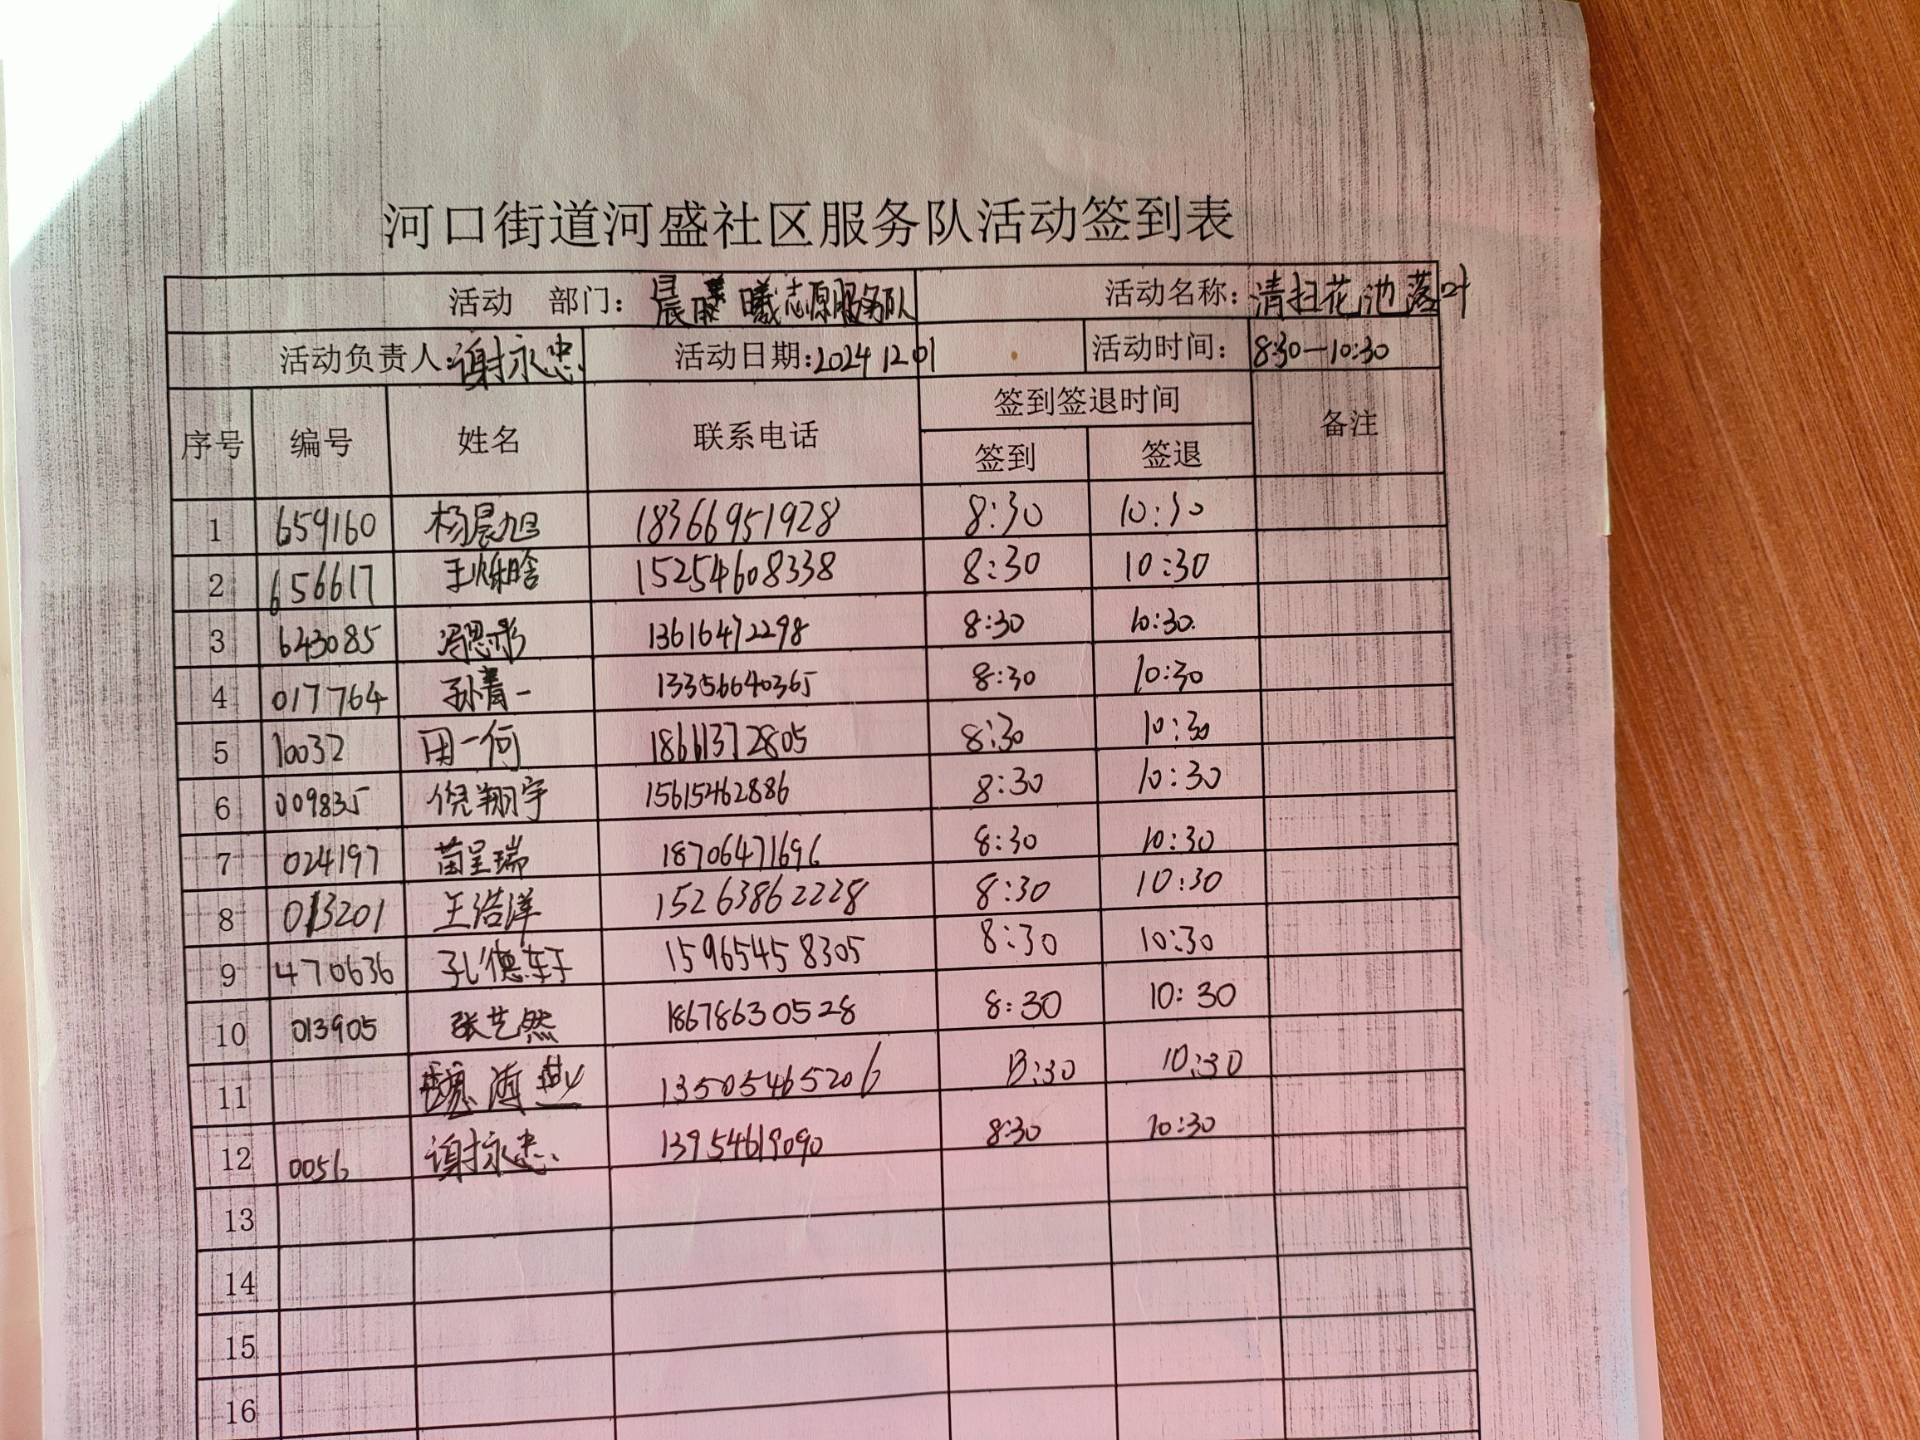 河口街道河盛社区服务队活动签到表
活动 部门: 晨曦志愿服务队 活动名称: 清扫花池落叶
活动负责人: 谢永忠 活动日期: 2024 12 01 活动时间: 8:30—10:30
序号 编号 姓名 联系电话 签到签退时间 备注
签到 签退
1 659160 杨晨旭 18366951928 8:30 10:30
2 656617 王烁晗 15254608338 8:30 10:30
3 643085 冯思彤 13616472298 8:30 10:30
4 017764 孙青一 13356640365 8:30 10:30
5 10032 田一何 18661372805 8:30 10:30
6 009835 倪翔宇 15615462886 8:30 10:30
7 024197 苗呈瑞 18706471696 8:30 10:30
8 013201 王浩洋 15263862228 8:30 10:30
9 470636 孔德轩 15965458305 8:30 10:30
10 013905 张艺然 18678630528 8:30 10:30
11 魏海燕 13505465206 8:30 10:30
12 0056 谢永忠 13954619090 8:30 10:30
13
14
15
16